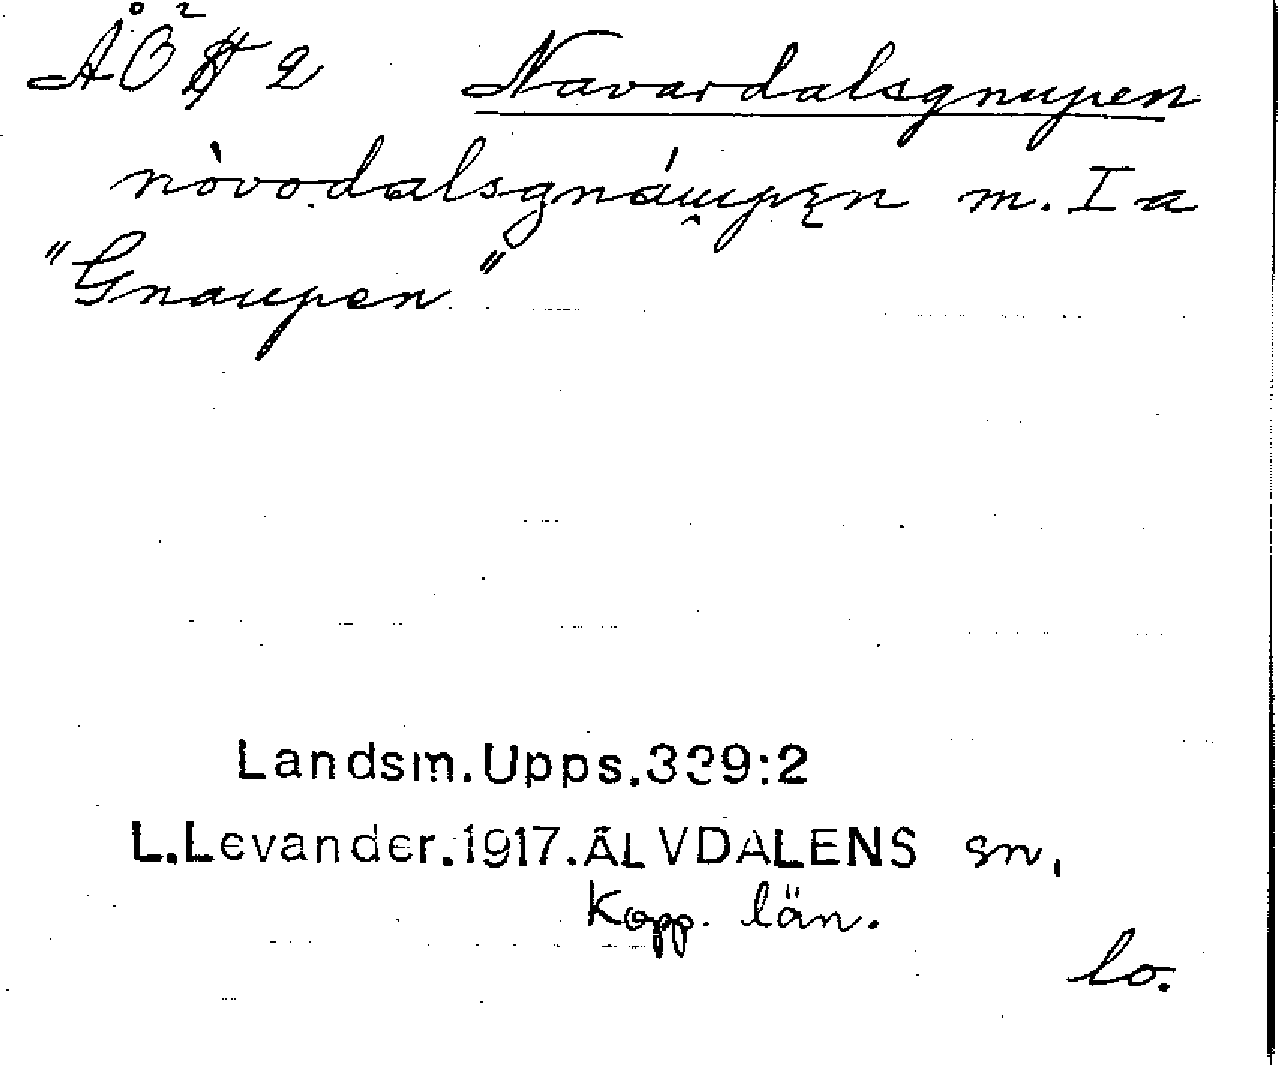 ÅÖ² 2 Navardalsgnupen
nòvodalsgnáu̯pęn m. I a
"Gnaupen"
Landsm.Upps.339:2
L.Levander.1917.ÄLVDALENS sn.
Kopp. län.
lo.